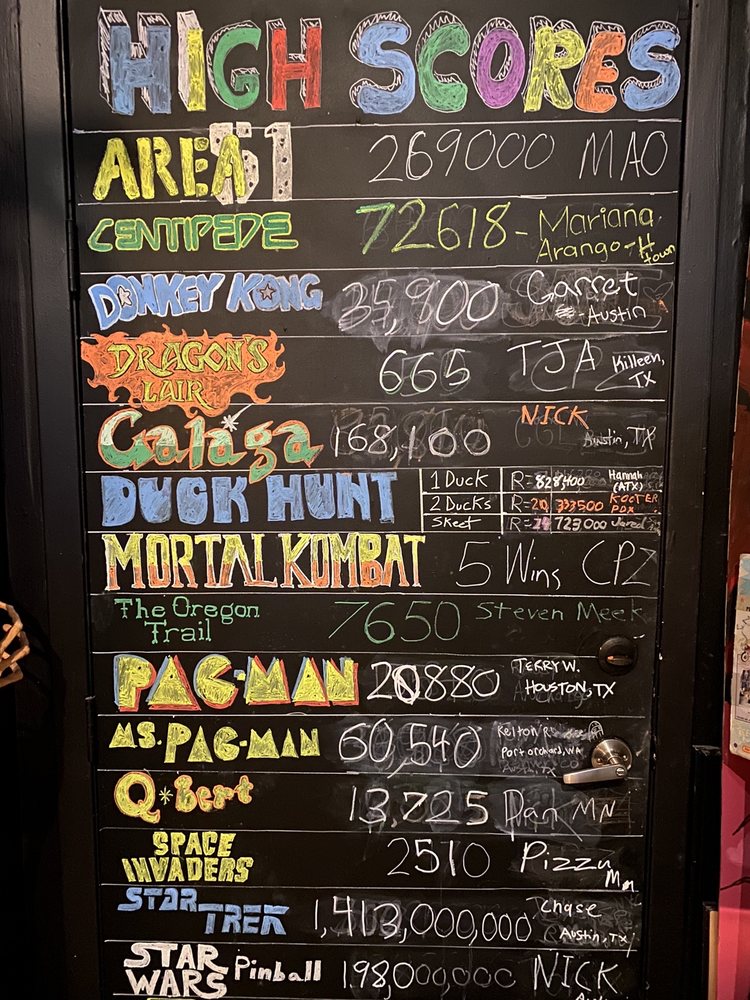 HIGH SCORES
AREA 51 269000 MAO
CENTIPEDE 72618 - Mariana
Arango - H town
DONKEY KONG 35,900 Garret
- Austin
DRAGON'S LAIR 665 TJA Killeen, TX
Galaga 168,100 NICK
Austin, TX
DUCK HUNT
1 Duck R= 828,400 Hannah (ATX)
2 Ducks R=20 333500 KOOTER PDX
Skeet R=24 723000 Jared
MORTAL KOMBAT 5 Wins CPZ
The Oregon Trail 7650 Steven Meek
PAC-MAN 20880 TERRY W.
HOUSTON, TX
MS. PAC-MAN 60,540 Kelton R
Port orchard, WA
Q*Bert 13,725 Dan MN
SPACE INVADERS 2510 Pizza
STAR TREK 1,413,000,000 Chase
Austin, TX
STAR WARS Pinball 198,000,000 NICK